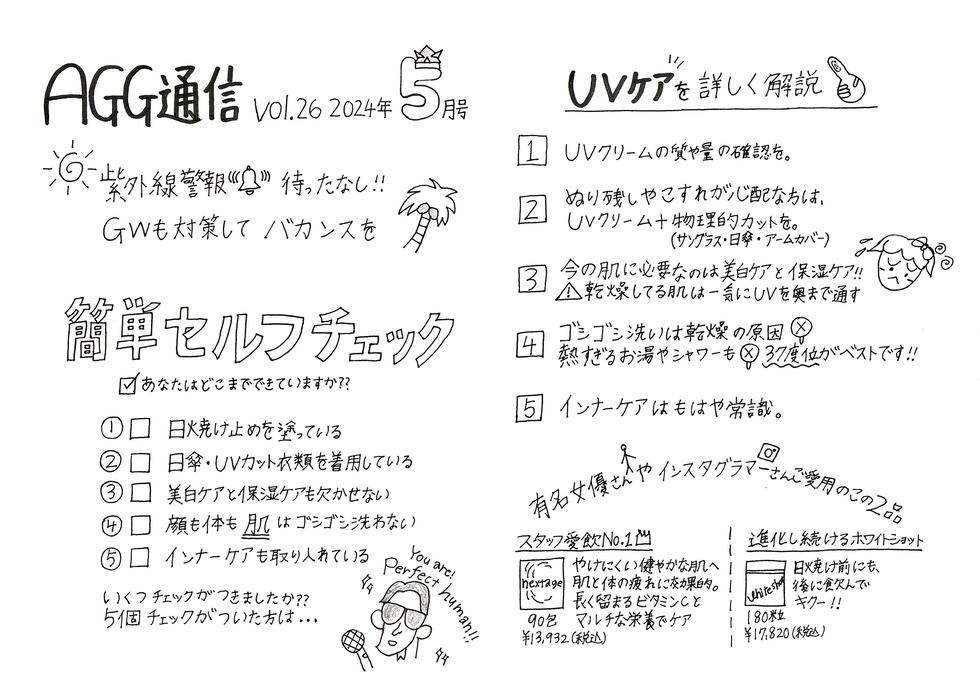 AGG通信 VOL.26 2024年 5月号
紫外線警報 待ったなし!!
GWも対策して バカンスを
簡単セルフチェック
あなたはどこまでできていますか??
① 日焼け止めを塗っている
② 日傘・UVカット衣類を着用している
③ 美白ケアと保湿ケアも欠かせない
④ 顔も体も 肌 はゴシゴシ洗わない
⑤ インナーケアも取り入れている
いくつチェックがつきましたか??
5個チェックがついた方は...
You are!
Perfect human!!
UVケアを詳しく解説
1 UVクリームの質や量の確認を。
2 ぬり残しやこすれが心配な方は、
UVクリーム+物理的カットを。
(サングラス・日傘・アームカバー)
3 今の肌に必要なのは美白ケアと保湿ケア!!
⚠乾燥してる肌は一気にUVを奥まで通す
4 ゴシゴシ洗いは乾燥の原因ⓧ
熱すぎるお湯やシャワーもⓧ 37度位がベストです!!
5 インナーケアはもはや常識。
有名女優さんや インスタグラマーさんご愛用のこの2品
スタッフ愛飲No.1
nextage
90包
¥13,932(税込)
やけにくい健やかな肌へ
肌と体の疲れに効果的。
長く留まるビタミンCと
マルチな栄養でケア
進化し続けるホワイトショット
White shot
180粒
¥17,820(税込)
日焼け前にも、
後に飲んで
キクー!!